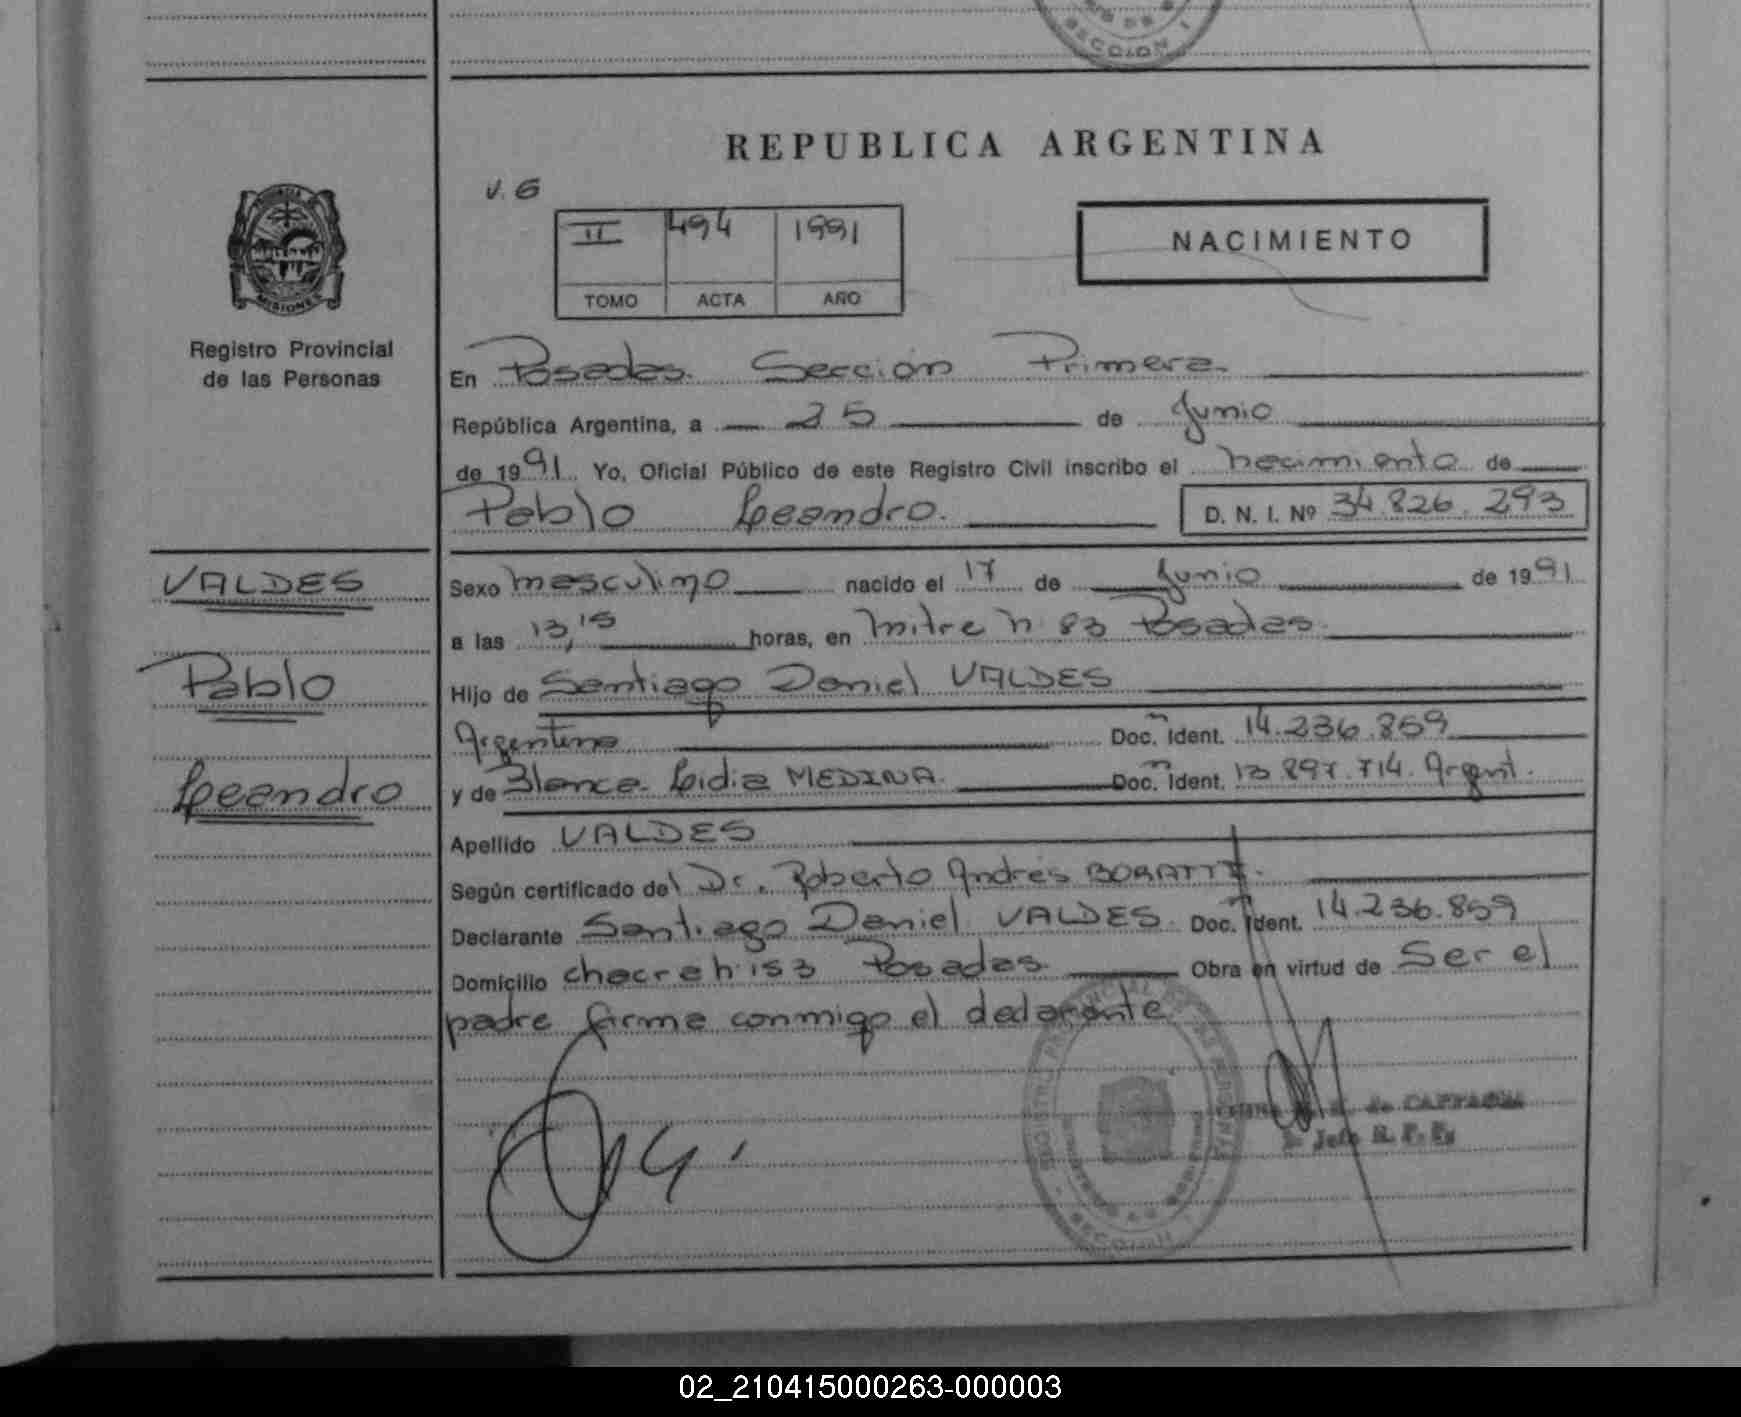 SECCION 1
REPUBLICA ARGENTINA
V. 6
II 494 1991
TOMO ACTA AÑO
NACIMIENTO
MISIONES
Registro Provincial
de las Personas
En Posadas Sección Primera
República Argentina, a 25 de Junio
de 1991 Yo, Oficial Público de este Registro Civil inscribo el nacimiento de
Pablo Leandro. D. N. I. Nº 34.826.293
VALDES
Pablo
Leandro
Sexo masculino nacido el 17 de Junio de 1991
a las 13,15 horas, en Mitre n 83 Posadas
Hijo de Santiago Daniel VALDES
Argentino Doc. Ident. 14.236.859
y de Blanca Lidia MEDINA Doc. Ident. 13.897.714. Argent.
Apellido VALDES
Según certificado del Dr. Roberto Andrés
Declarante Santiago Daniel VALDES Doc. Ident. 14.236.859
Domicilio chacra n: 153 Posadas Obra en virtud de Ser el
padre firma conmigo el declarante
Jefe R. P. Ps
02_210415000263-000003